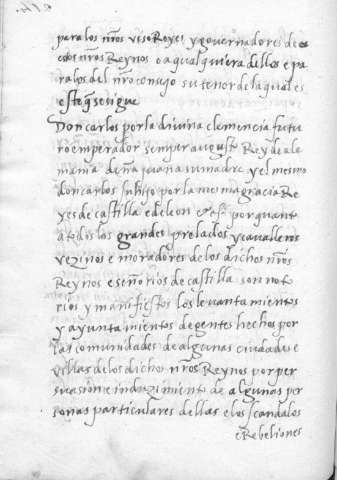 para los nros visoReyes y governadores de
estos nros Reynos o a qualquiera dellos e pa
ra los del nro consejo su tenor de la qual es
este q̃ se sigue
Don carlos por la divina clemencia futu
ro emperador semper august Rey de ale
mania doña juana su madre y el mesmo
don carlos su hijo por la mesma gracia Re
yes de castilla e de leon etc por quanto
a todos los grandes prelados y cavalleros
vezinos e moradores de los dichos nros
Reynos e señorios de castilla son noto
rios y manifiestos los levantamientos
y ayuntamientos de gentes hechos por
las comunidades de algunas ciudades e
villas de los dichos nros Reynos por per
suasion e induzimiento de algunas per
sonas particulares dellas e los scandalos
e Rebeliones